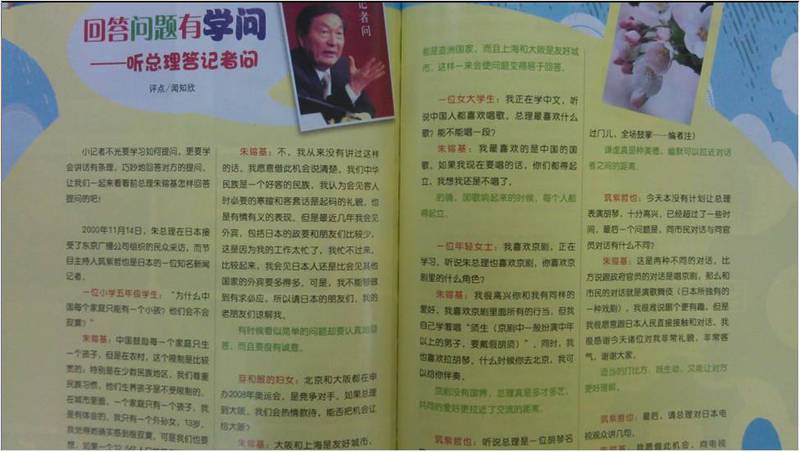 回答问题有学问
——听总理答记者问
评点/闻知欣
记者问
小记者不光要学习如何提问，更要学
会讲话有条理，巧妙地回答对方的提问。
让我们一起来看看前总理朱镕基怎样回答
提问的吧！
2000年11月14日，朱总理在日本接
受了东京广播公司组织的民众采访，而节
目主持人筑紫哲也是日本的一位知名新闻
记者。
一位小学五年级学生：“为什么中
国每个家庭只能有一个小孩？他们会不会
寂寞？”
朱镕基：中国鼓励每一个家庭只生
一个孩子，但是在农村，这个限制是比较
宽的；特别是在少数民族地区，我们尊重
民族习惯，他们生养孩子是不受限制的。
在城市里面，一个家庭只有一个孩子，我
是有体会的。我只有一个外孙女，13岁，
我觉得她确实感到很寂寞，可是我们也要
朱镕基：不，我从来没有讲过这样
的话。我愿意借此机会说清楚，我们中华
民族是一个好客的民族，我认为会见客人
时必要的寒暄和客套话是起码的礼貌，也
是有情有义的表现。但是最近几年我会见
外宾，包括日本的政要和朋友们比较少，
这是因为我的工作太忙了，我忙不过来。
比较起来，我会见日本人还是比会见其他
国家的外宾要多得多。可是，我不能够做
到有求必应，所以请日本的朋友们，我的
老朋友们谅解我。
有时候看似简单的问题却要认真地回
答，而且要很有诚意。
穿和服的妇女：北京和大阪都在申
办2008年奥运会，是竞争对手。如果总理
到大阪，我们会热情款待，能否把机会让
给大阪？
朱镕基：大阪和上海是友好城市，
都是亚洲国家，而且上海和大阪是友好城
市，这样一来会使问题变得易于回答。
一位女大学生：我正在学中文，听
说中国人都喜欢唱歌，总理最喜欢什么
歌？能不能唱一段？
朱镕基：我最喜欢的是中国的国
歌。如果我现在要唱的话，你们都得起
立，我想我还是不唱了。
的确，国歌响起来的时候，每个人都
得起立。
一位年轻女士：我喜欢京剧，正在
学习。听说朱总理也喜欢京剧，你喜欢京
剧里的什么角色？
朱镕基：我很高兴你和我有同样的
爱好。我喜欢京剧里面所有的行当，但我
自己学着唱“须生（京剧中一般扮演中年
以上的男子，要戴假胡须）”，同时，我
也喜欢拉胡琴。什么时候你去北京，我可
以给你伴奏。
京剧没有国界，总理真是多才多艺，
共同的爱好更拉近了交流的距离。
筑紫哲也：听说总理是一位胡琴名
过门儿，全场鼓掌——编者注）
谦虚真是种美德，幽默可以拉近对话
者之间的距离。
筑紫哲也：今天本没有计划让总理
表演胡琴，十分高兴，已经超过了一些时
间，最后一个问题是，同市民对话与同官
员对话有什么不同？
朱镕基：这是两种不同的对话，比
方说跟政府官员的对话是唱京剧，那么和
市民的对话就是演歌舞伎（日本所独有的
一种戏剧），我很难说哪个更有趣，但是
我很愿意跟日本人民直接接触和对话。我
很感谢今天诸位对我非常礼貌，非常客
气，谢谢大家。
适当的打比方，既生动，又能让对方
更好理解。
筑紫哲也：最后，请总理对日本电
视观众讲几句。
朱镕基：我愿借此机会，向电视